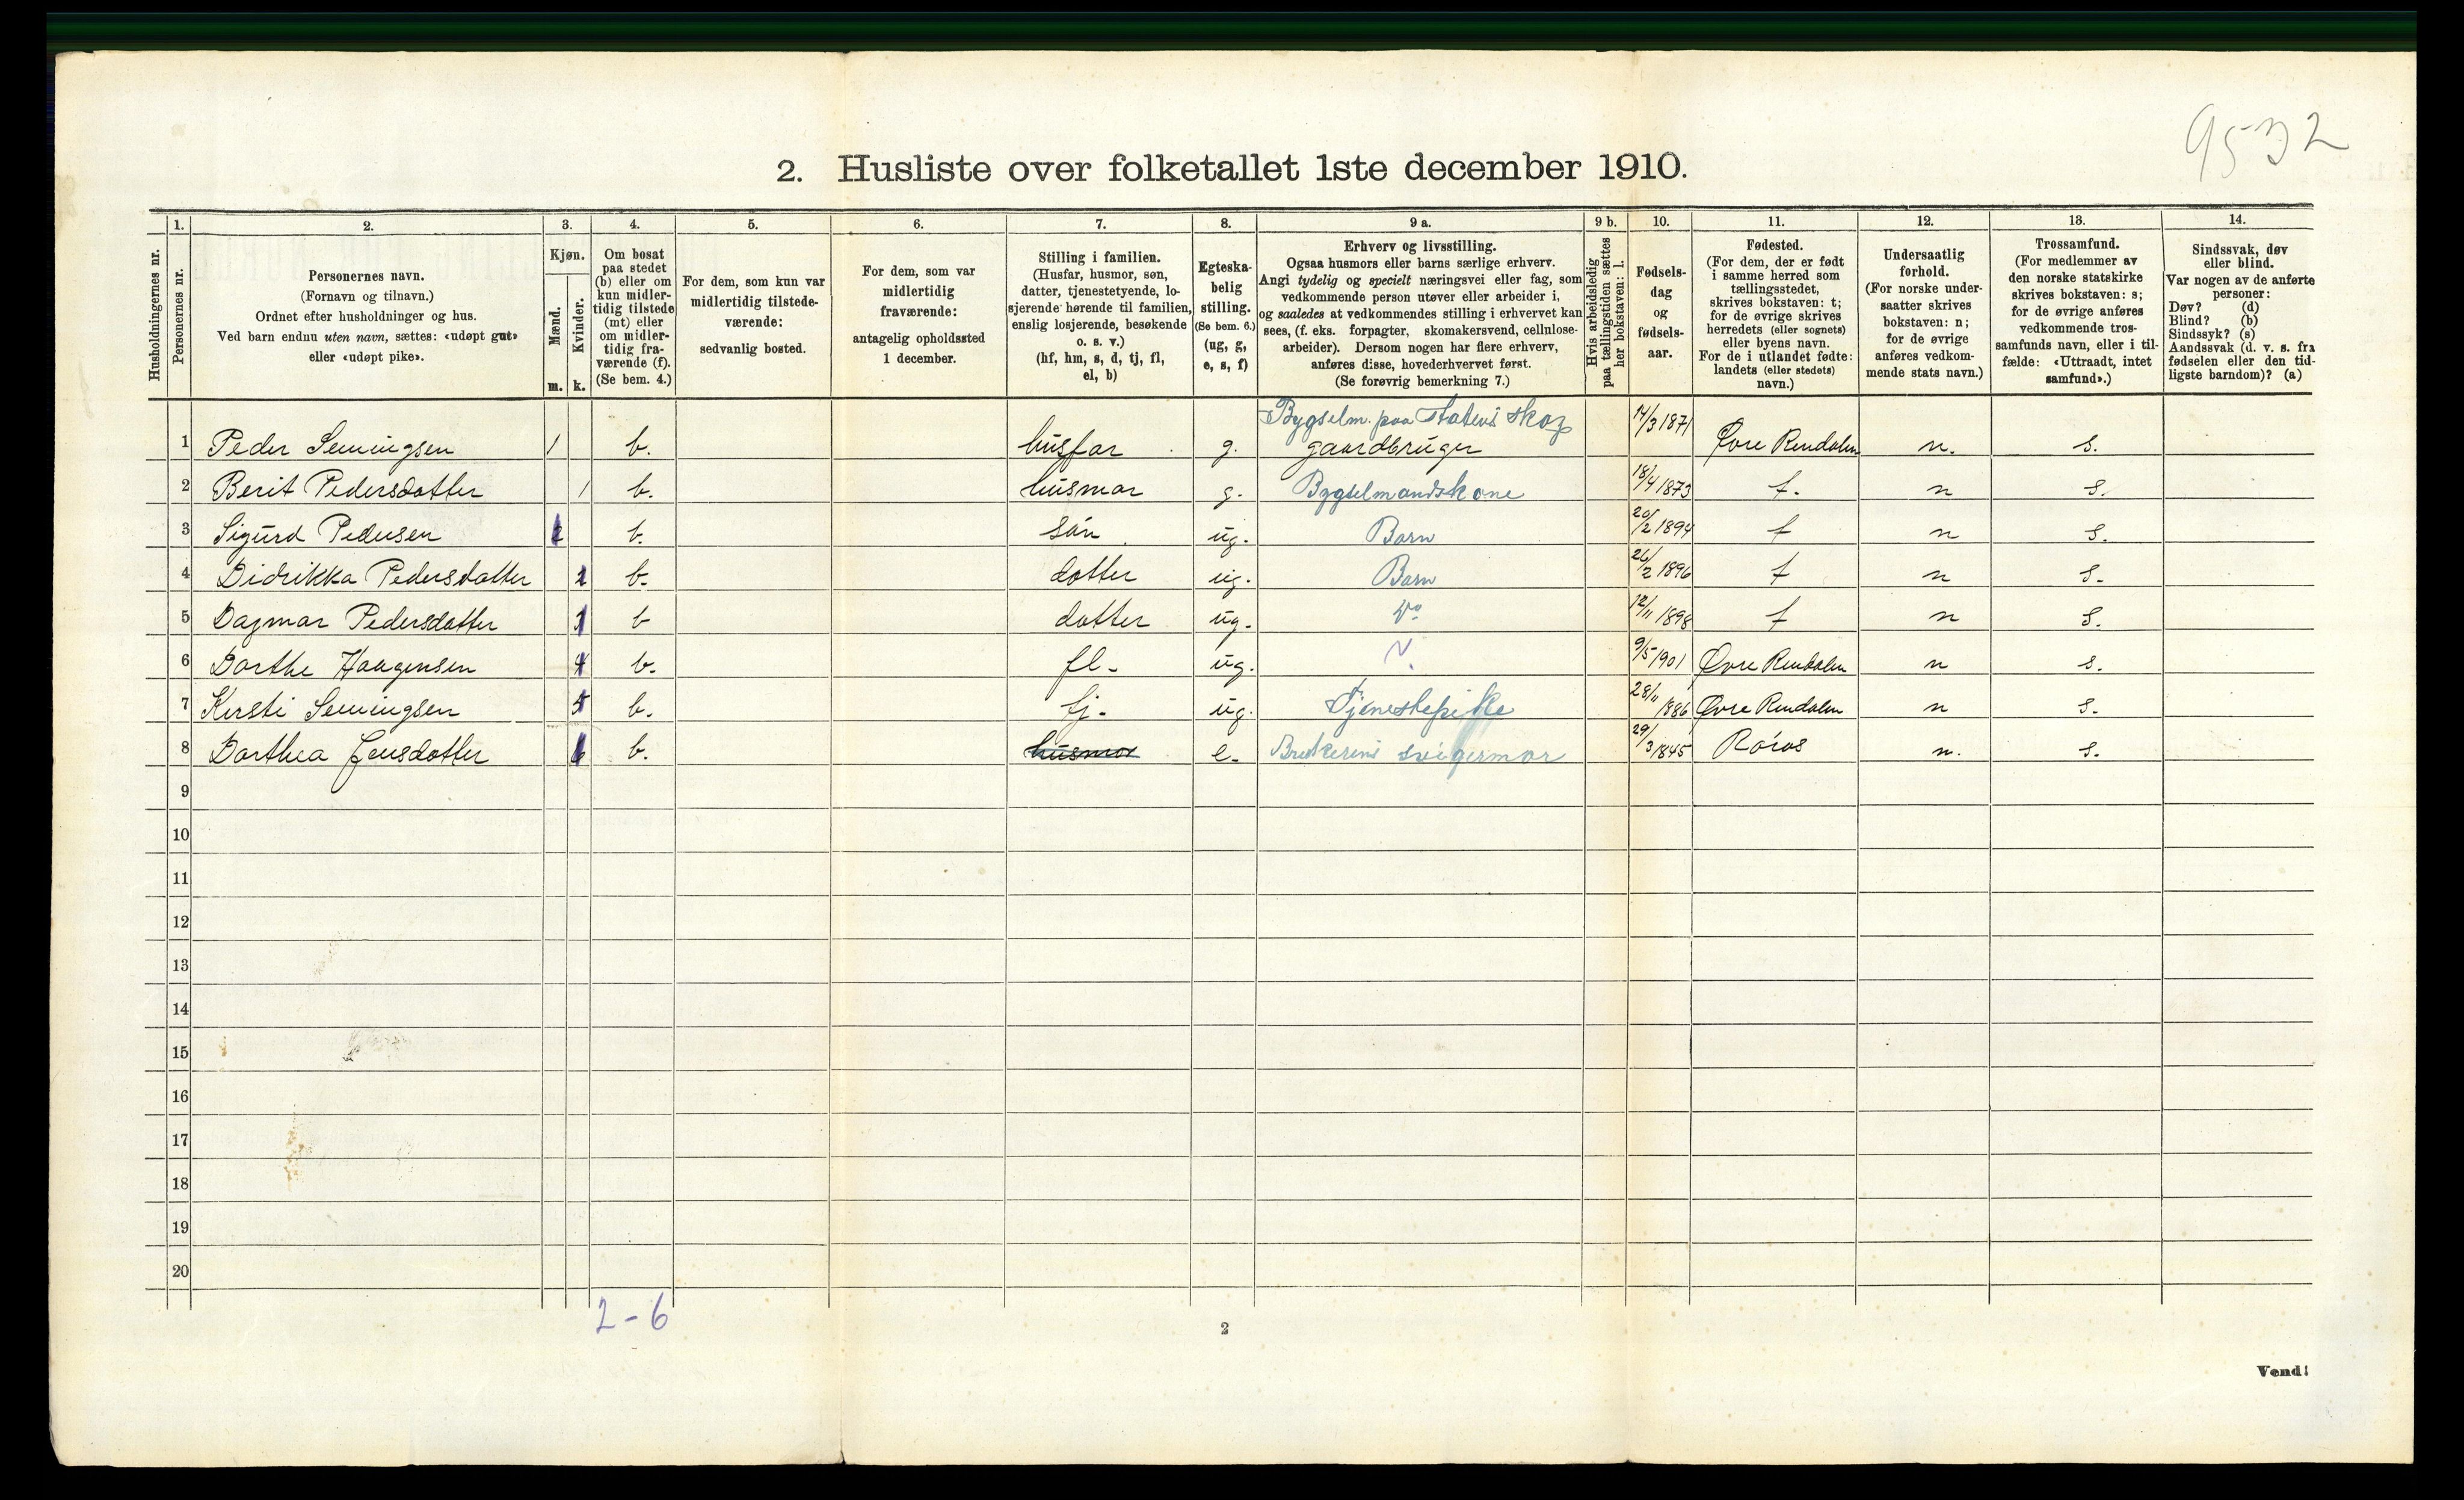 9532
2. Husliste over folketallet 1ste december 1910.
Husholdningernes nr.
1.
Personernes nr.
2.
Personernes navn.
(Fornavn og tilnavn.)
Ordnet efter husholdninger og hus.
Ved barn endnu uten navn, sættes: «udøpt gut»
eller «udøpt pike».
3.
Kjøn.
Mænd.
Kvinder.
m. k.
4.
Om bosat
paa stedet
(b) eller om
kun midler-
tidig tilstede
(mt) eller
om midler-
tidig fra-
værende (f).
(Se bem. 4.)
5.
For dem, som kun var
midlertidig tilstede-
værende:
sedvanlig bosted.
6.
For dem, som var
midlertidig
fraværende:
antagelig opholdssted
1 december.
7.
Stilling i familien.
(Husfar, husmor, søn,
datter, tjenestetyende, lo-
sjerende hørende til familien,
enslig losjerende, besøkende
o. s. v.)
(hf, hm, s, d, tj, fl,
el, b)
8.
Egteska-
belig
stilling.
(Se bem. 6.)
(ug, g,
e, s, f)
9 a.
Erhverv og livsstilling.
Ogsaa husmors eller barns særlige erhverv.
Angi tydelig og specielt næringsvei eller fag, som
vedkommende person utøver eller arbeider i,
og saaledes at vedkommendes stilling i erhvervet kan
sees, (f. eks. forpagter, skomakersvend, cellulose-
arbeider). Dersom nogen har flere erhverv,
anføres disse, hovederhvervet først.
(Se forøvrig bemerkning 7.)
9 b.
Hvis arbeidsledig
paa tællingstiden sættes
her bokstaven: l.
10.
Fødsels-
dag
og
fødsels-
aar.
11.
Fødested.
(For dem, der er født
i samme herred som
tællingsstedet,
skrives bokstaven: t;
for de øvrige skrives
herredets (eller sognets)
eller byens navn.
For de i utlandet fødte:
landets (eller stedets)
navn.)
12.
Undersaatlig
forhold.
(For norske under-
saatter skrives
bokstaven: n;
for de øvrige
anføres vedkom-
mende stats navn.)
13.
Trossamfund.
(For medlemmer av
den norske statskirke
skrives bokstaven: s;
for de øvrige anføres
vedkommende tros-
samfunds navn, eller i til-
fælde: «Uttraadt, intet
samfund».)
14.
Sindssvak, døv
eller blind.
Var nogen av de anførte
personer:
Døv? (d)
Blind? (b)
Sindssyk? (s)
Aandssvak (d. v. s. fra
fødselen eller den tid-
ligste barndom)? (a)
Bygselm. paa Statens skog
1 Peder Semingsen 1 b. husfar g. gaardbruger 14/3 1871 Øvre Rendalen n. s.
2 Berit Pedersdatter 1 b. husmor g. Bygselmandskone 18/4 1873 t. n s.
3 Sigurd Pedersen 2 b. søn ug. Barn 20/2 1894 t n s.
4 Didrikka Pedersdatter 2 b. dotter ug. Barn 26/2 1896 t n s.
5 Dagmar Pedersdatter 3 b dotter ug. Do 12/11 1898 t n s.
6 Dorthe Haagensen 4 b. fl. ug. 9/5 1901 Øvre Rendalen n s.
7 Kersti Semingsen 5 b. tj. ug. Tjenestepike 28/11 1886 Øvre Rendalen n s.
8 Dorthea Jensdotter 6 b. husmor e. Brukerens svigermor 29/3 1845 Røros n. s.
9
10
11
12
13
14
15
16
17
18
19
20
2-6
2
Vend!